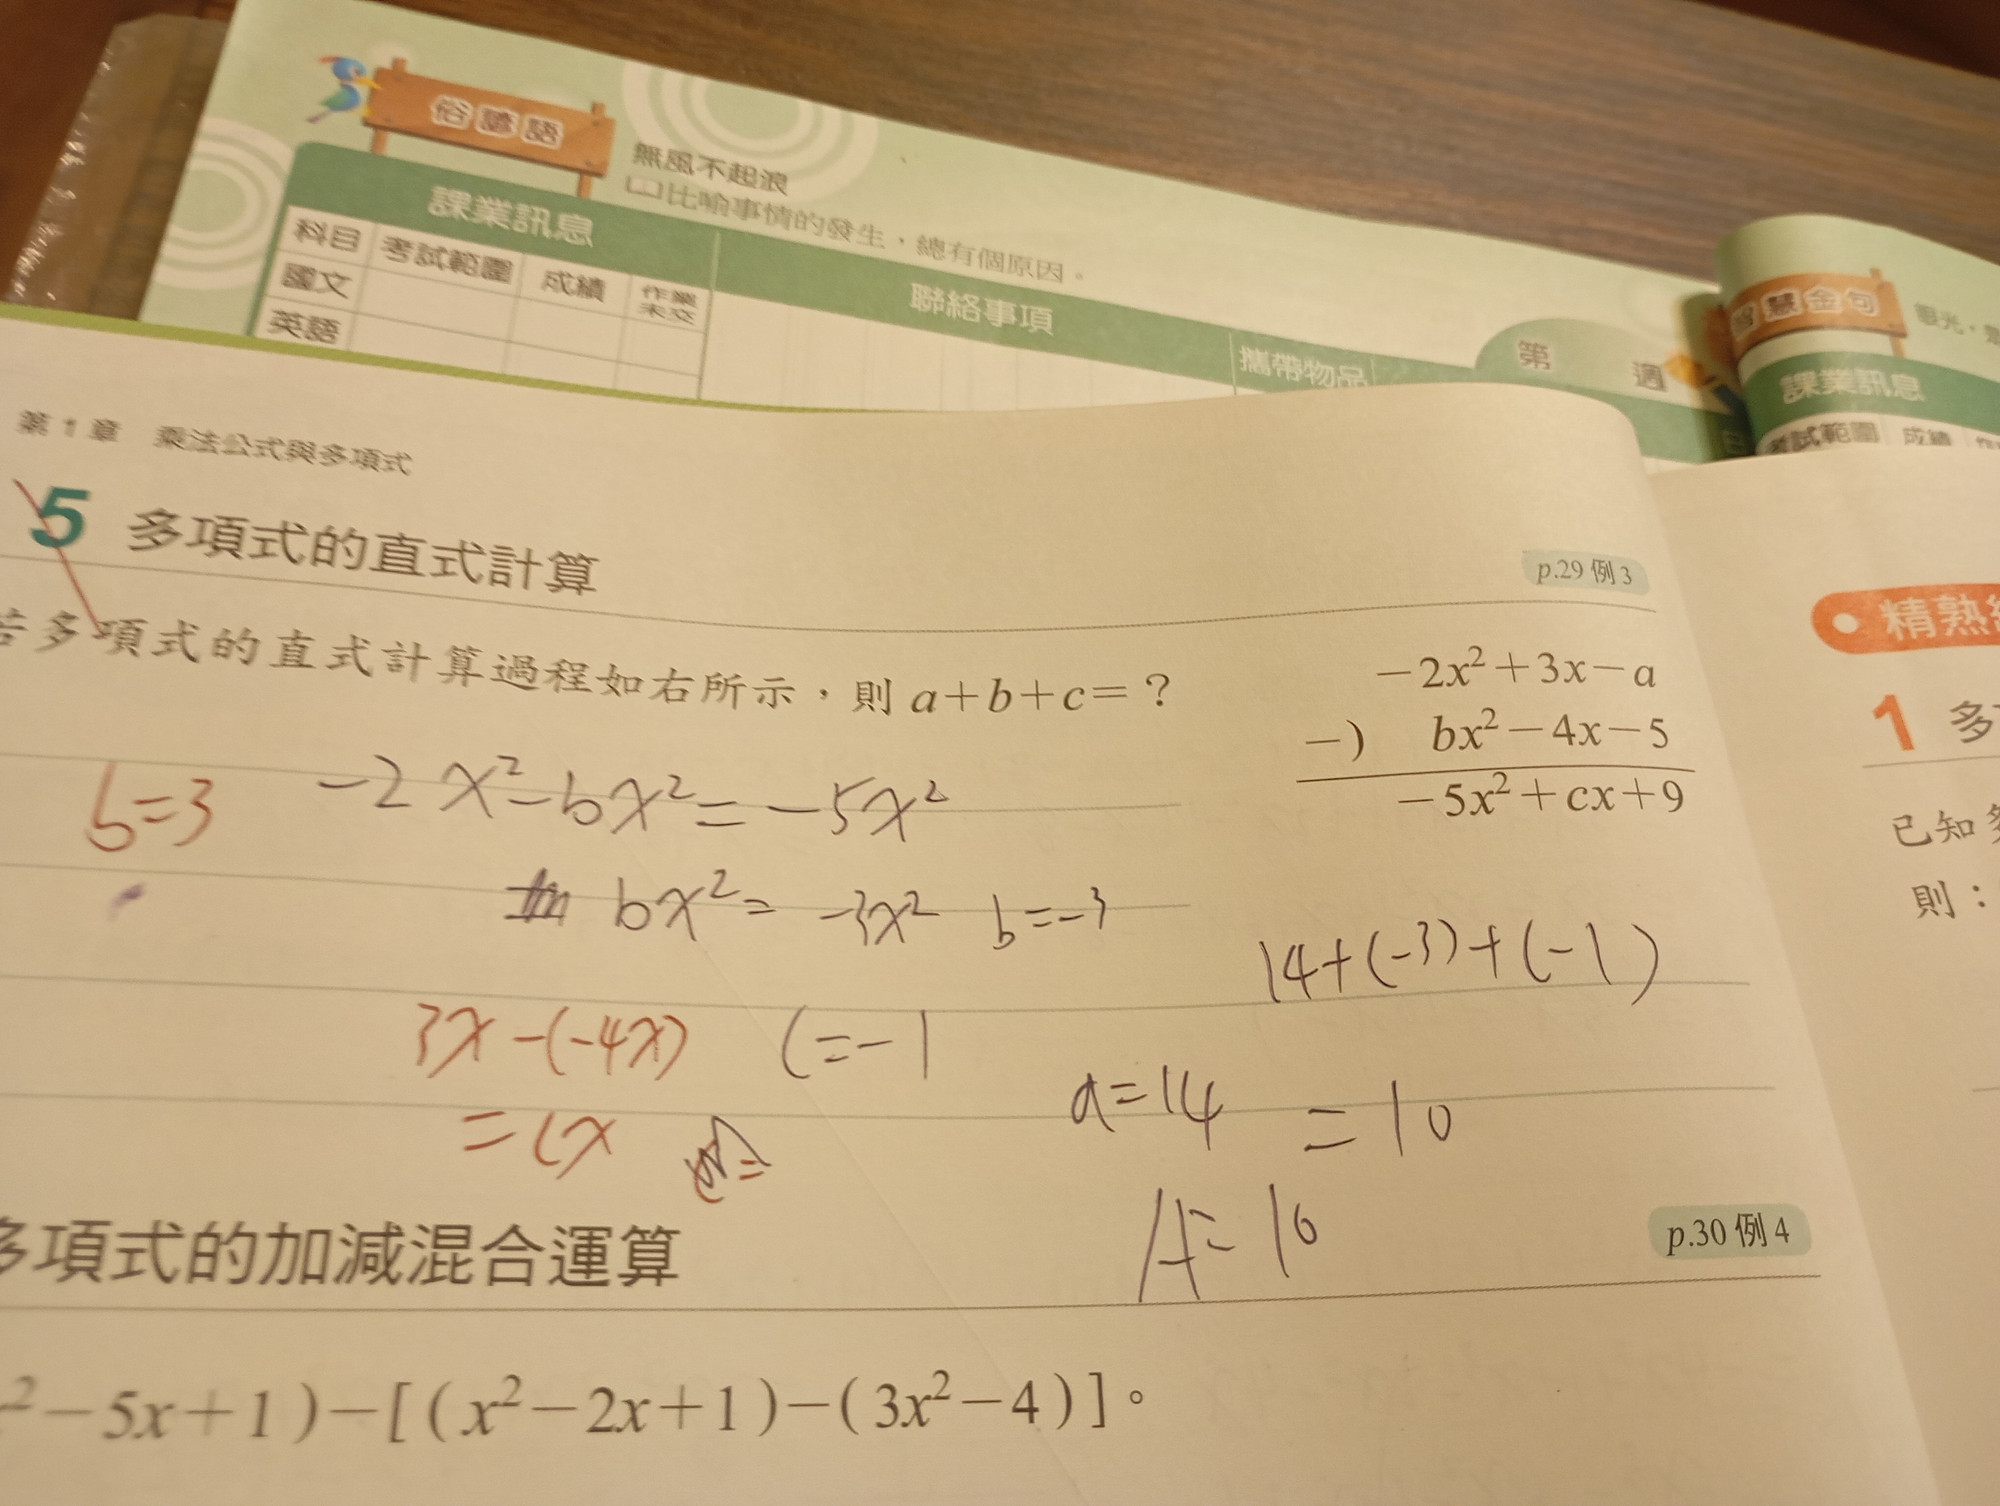 俗諺語
無風不起浪
比喻事情的發生，總有個原因。
課業訊息
聯絡事項
科目 考試範圍 成績 作業未交
國文
英語
攜帶物品
第 週
智慧金句
課業訊息
考試範圍 成績
第1章 乘法公式與多項式
5 多項式的直式計算
p.29 例3
若多項式的直式計算過程如右所示，則 a+b+c=？
-2x²+3x-a
-) bx²-4x-5
-5x²+cx+9
b=3
-2x²-bx²=-5x²
bx²= -3x² b=-3
14+(-3)+(-1)
3x-(-4x)
=cx
c=-1
a=14
=10
A=10
多項式的加減混合運算
p.30 例4
²-5x+1)-[(x²-2x+1)-(3x²-4)]。
精熟
1 多
已知多
則：